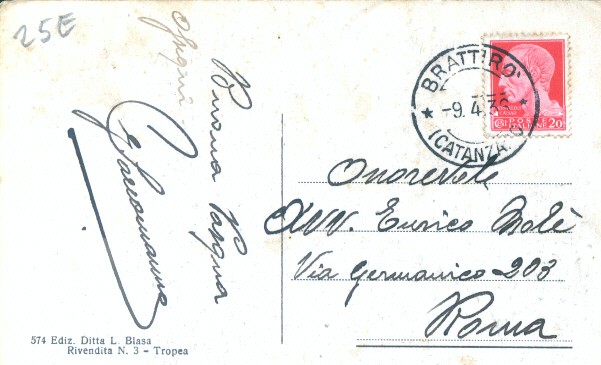 25E
Buona Pasqua
Auguri
BRATTIRO'
-9.4.36
(CATANZARO)
POSTE ITALIANE 20
Onorevole
Avv. Enrico Molè
Via Germanico 203
Roma
574 Ediz. Ditta L. Blasa
Rivendita N. 3 - Tropea